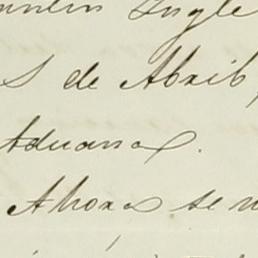 Ingle
S de Abril,
Aduana.
Ahora se